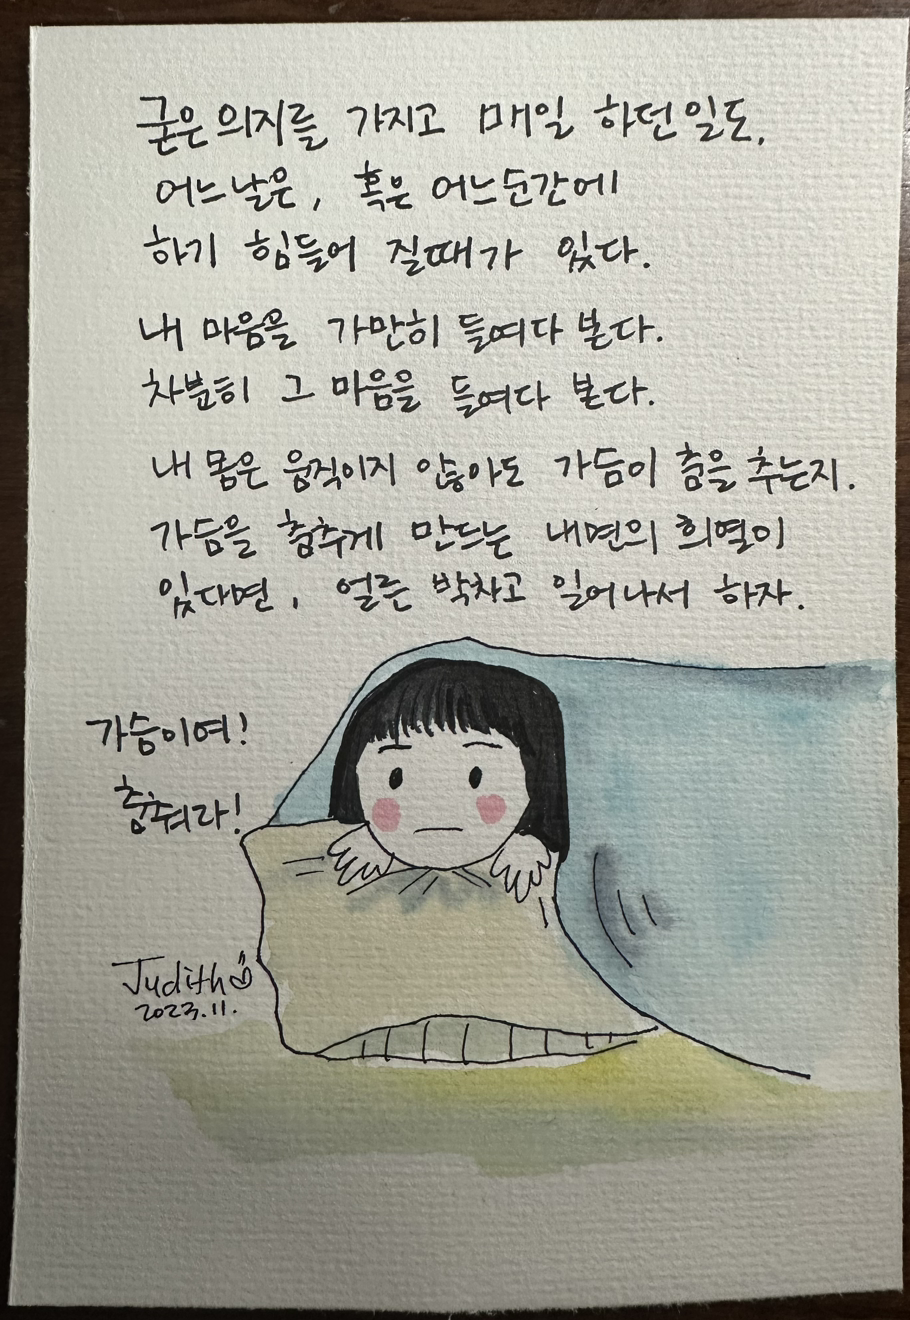 굳은 의지를 가지고 매일 하던 일도,
어느날은, 혹은 어느순간에
하기 힘들어 질때가 있다.
내 마음을 가만히 들여다 본다.
차분히 그 마음을 들여다 본다.
내 몸은 움직이지 않아도 가슴이 춤을 추는지.
가슴을 춤추게 만드는 내면의 희열이
있다면, 얼른 박차고 일어나서 하자.
가슴이여!
춤춰라!
Judith
2023.11.